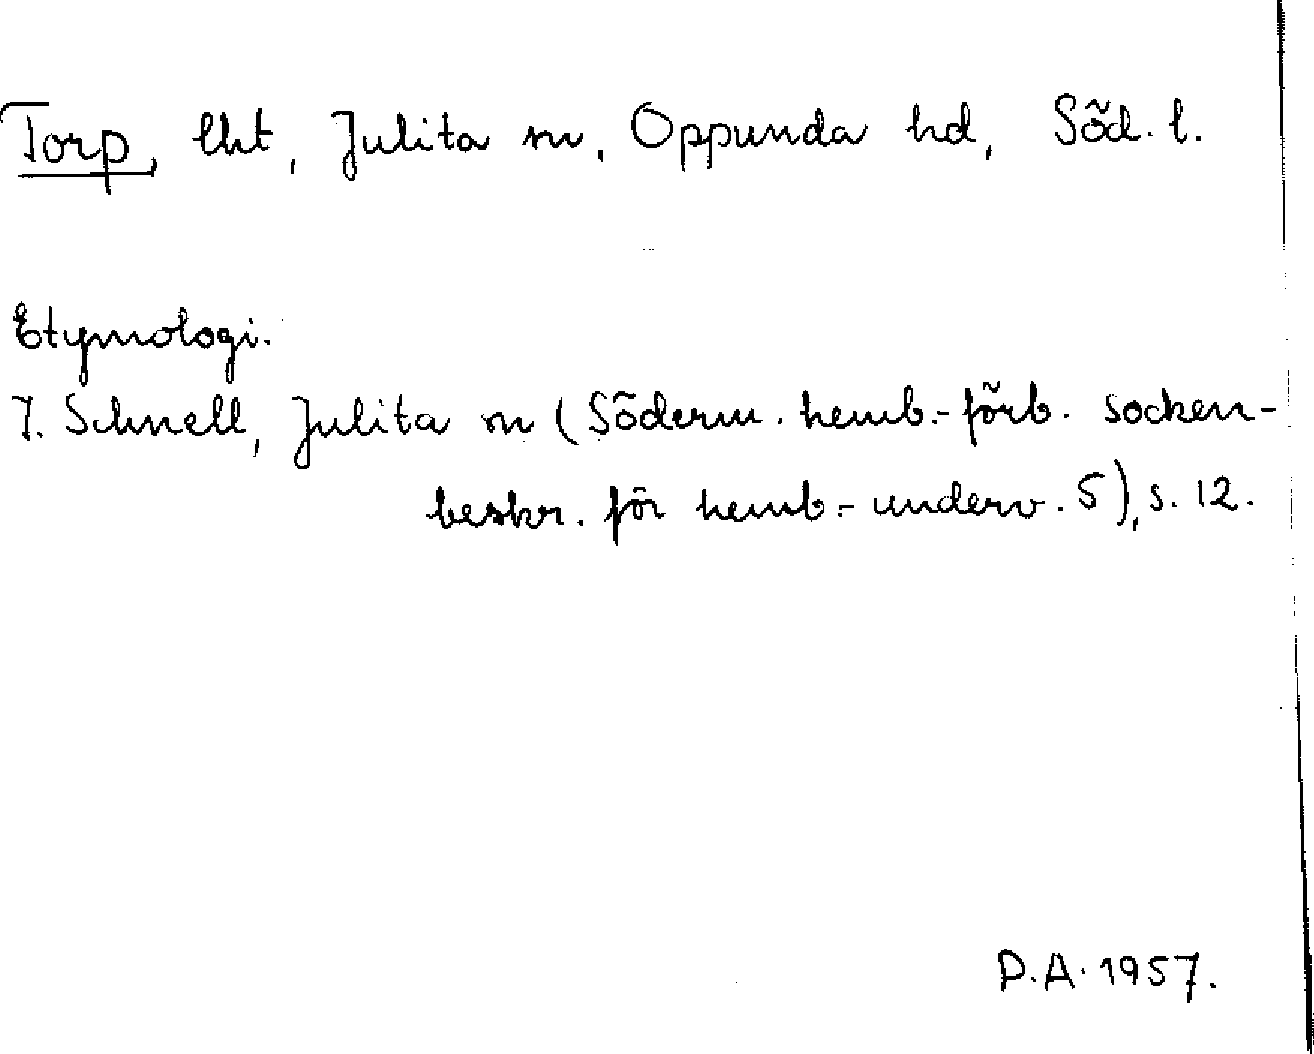 Torp, lht, Julita sn, Oppunda hd, Söd. l.
Etymologi.
I. Schnell, Julita sn (Söderm. hemb.-förb. socken-
beskr. för hemb.-underv. 5), s. 12.
D.A. 1957.